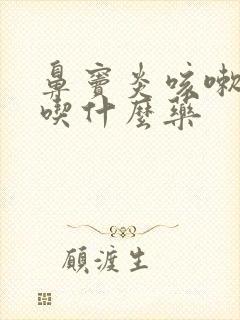 鼻窦炎咳嗽
喫什麼藥
顧渡生